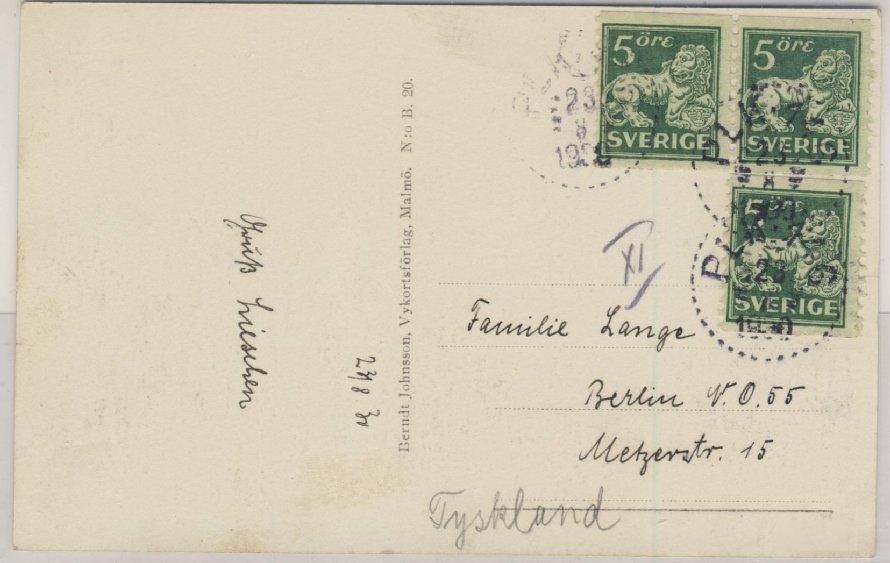 5 öre
SVERIGE
5 öre
SVERIGE
5
SVERIGE
23
8
23
8
23
XI
Gruß Lieschen
23/8 30
Berndt Johnsson, Vykortsförlag, Malmö. N:o B. 20.
Familie Lange
Berlin N.O.55
Metzerstr. 15
Tyskland